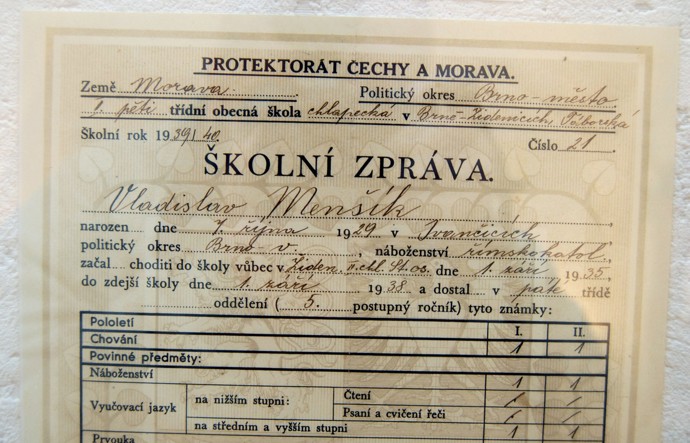 PROTEKTORÁT ČECHY A MORAVA.
Země Morava Politický okres Brno-město
I. pěti třídní obecná škola chlapecká v Brně-Židenicích, Táborská
Školní rok 1939/40. Číslo 21
ŠKOLNÍ ZPRÁVA.
Vladislav Menšík
narozen dne 7. října 1929 v Ivančicích,
politický okres Brno-v., náboženství římskokatol.,
začal choditi do školy vůbec v Židen. dne 1. září 1935,
do zdejší školy dne 1. září 1938 a dostal v páté třídě
oddělení (5. postupný ročník) tyto známky:
Pololetí I. II.
Chování 1 1
Povinné předměty:
Náboženství 1 1
Vyučovací jazyk na nižším stupni: Čtení / /
Psaní a cvičení řeči / /
na středním a vyšším stupni 1 1
Prvouka